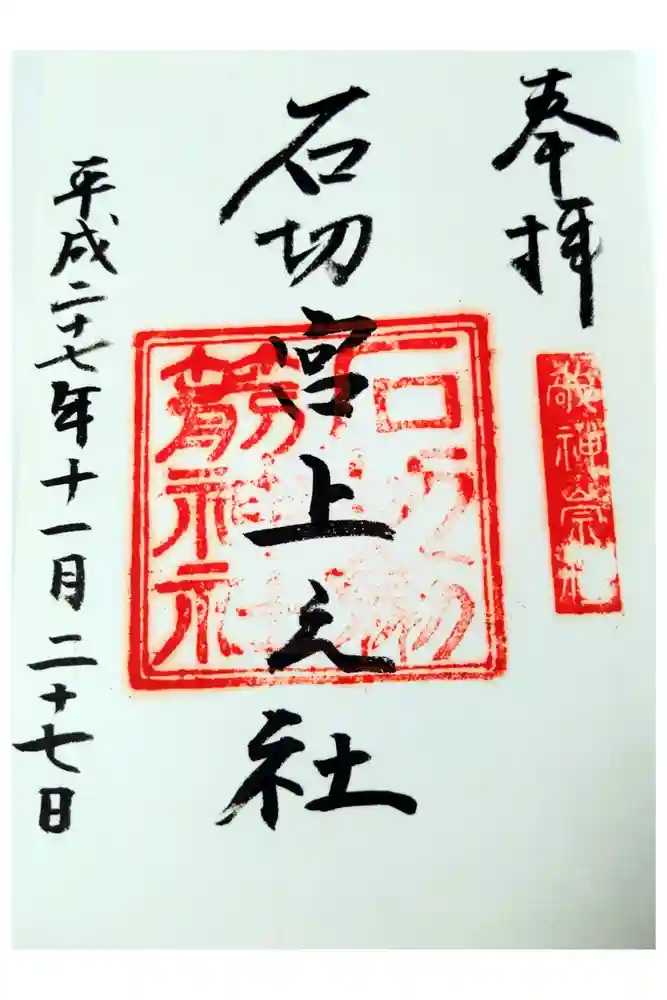 奉拝
敬神崇祖
石切宮上之社
平成二十七年十一月二十七日